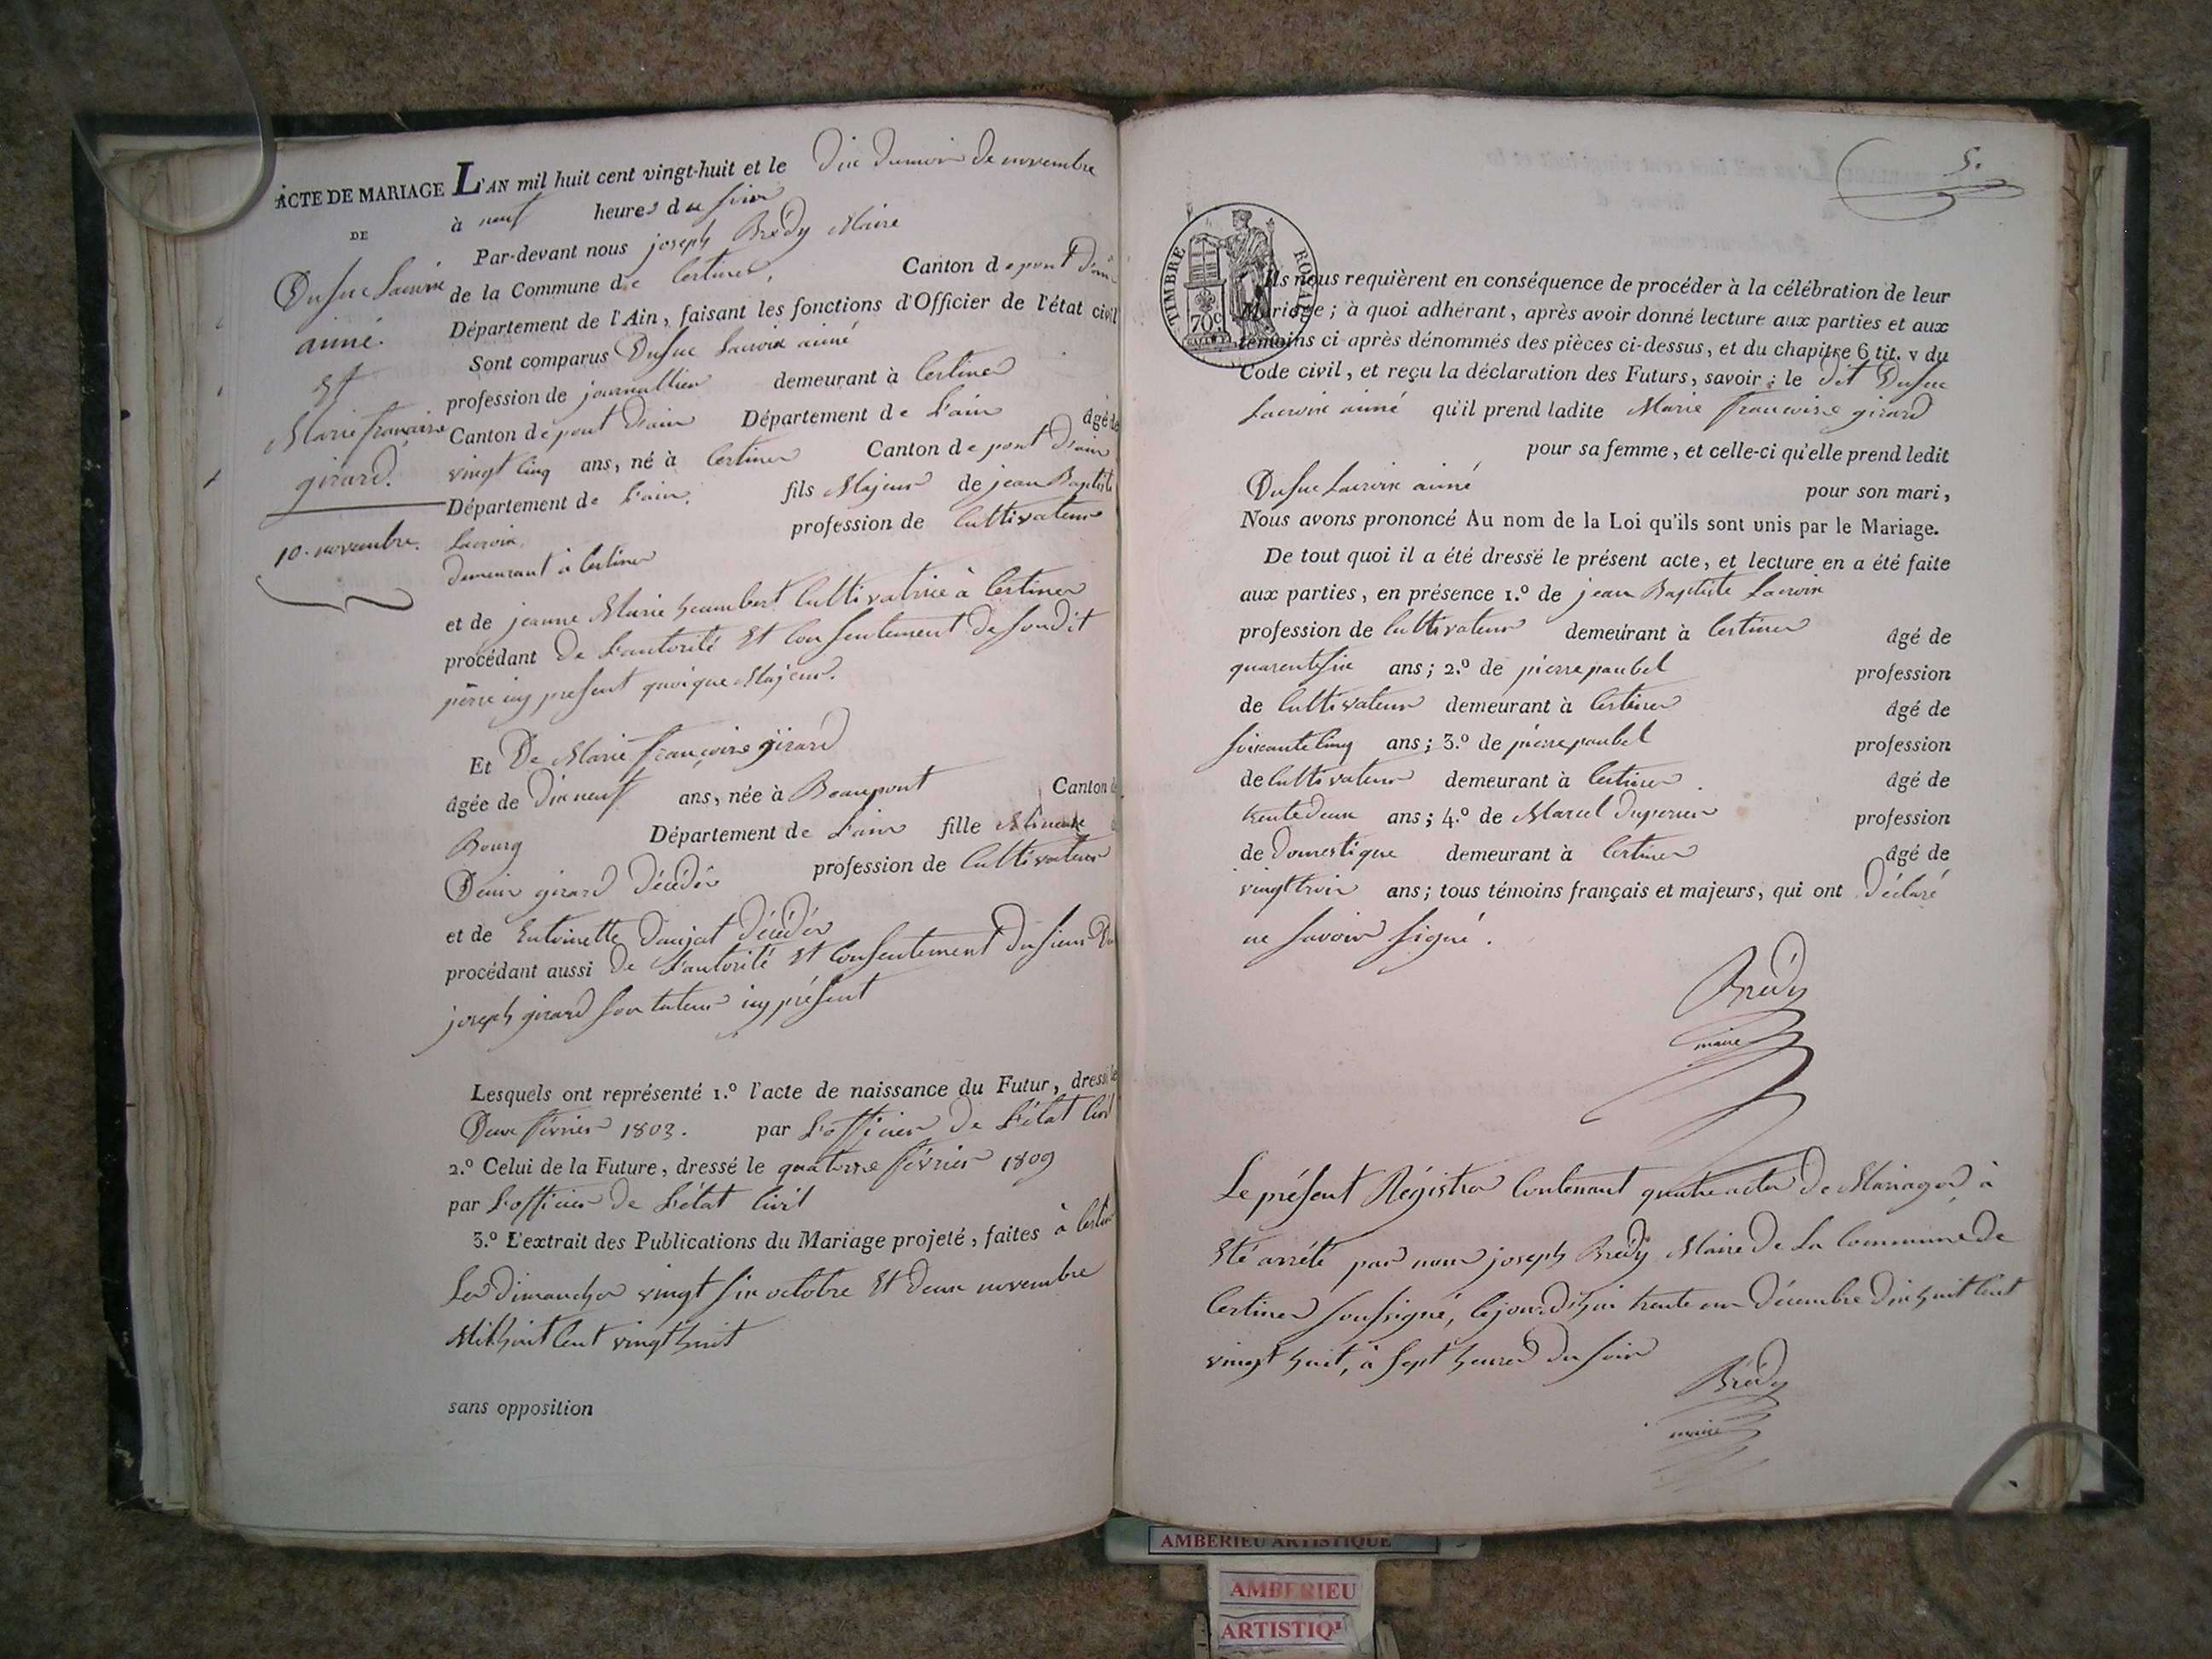 ACTE DE MARIAGE L'AN mil huit cent vingt-huit et le dix du mois de novembre
DE
à neuf heures du soir
Par-devant nous joseph Brédy Maire
de la Commune de Certines, Canton de pont d'ain
Département de l'Ain, faisant les fonctions d'Officier de l'état civil
Sont comparus Dufuc Lacroix aimé
profession de journallier demeurant à Certines
Canton de pont d'ain Département de L'ain âgé de
vingt cinq ans, né à Certines Canton de pont d'ain
Département de L'ain. fils Majeur de jean Baptiste
Lacroix, profession de Cultivateur
demeurant à Certines
et de jeanne Marie humbert Cultivatrice à Certines
procédant de L'autorité Et Consentement de Sondit
père icy présent quoique Majeur.
Et De Marie françoise girard
âgée de dix neuf ans, née à Beaupont Canton de
Bourg Département de L'ain fille Mineure
Denis girard Décédés profession de Cultivateur
et de Entoinette Danjat décédés
procédant aussi de L'autorité Et Consentement du Sieur
joseph girard Son tuteur icy présent
Lesquels ont représenté 1.º l'acte de naissance du Futur, dressé le
Deux février 1803. par L'officier De L'état Civil
2.º Celui de la Future, dressé le quatorze février 1809
par L'officier De L'état Civil
3.º L'extrait des Publications du Mariage projeté, faites à
Les Dimanches vingt Six octobre Et Deux novembre
Mil huit Cent vingt huit
sans opposition
Dufuc Lacroix
aimé.
Et
Marie françoise
girard.
10. novembre.
5.
TIMBRE ROYAL
70c
Ils nous requièrent en conséquence de procéder à la célébration de leur
Mariage; à quoi adhérant, après avoir donné lecture aux parties et aux
témoins ci-après dénommés des pièces ci-dessus, et du chapitre 6 tit. v du
Code civil, et reçu la déclaration des Futurs, savoir; le dit Dufuc
Lacroix aimé qu'il prend ladite Marie françoise girard
pour sa femme, et celle-ci qu'elle prend ledit
Dufuc Lacroix aimé pour son mari,
Nous avons prononcé Au nom de la Loi qu'ils sont unis par le Mariage.
De tout quoi il a été dressé le présent acte, et lecture en a été faite
aux parties, en présence 1.º de jean Baptiste Lacroix
profession de Cultivateur demeurant à Certines âgé de
quarente Six ans; 2.º de pierre paubel profession
de Cultivateur demeurant à Certines âgé de
Soixante Cinq ans; 3.º de pierre paubel profession
de Cultivateur demeurant à Certines. âgé de
trente deux ans; 4.º de Marcel Duperier profession
de Domestique demeurant à Certines âgé de
vingt trois ans; tous témoins français et majeurs, qui ont déclaré
ne Savoir Signé.
Brédy
maire
Le présent Régistre Contenant quatre actes de Mariages à
Eté arrété par nous joseph Brédy Maire De La Commune de
Certines Soussigné, Cejourd'hui trente un décembre Dix huit Cent
vingt huit, à Sept heures du Soir
Brédy
maire
AMBERIEU ARTISTIQUE
AMBERIEU
ARTISTIQ